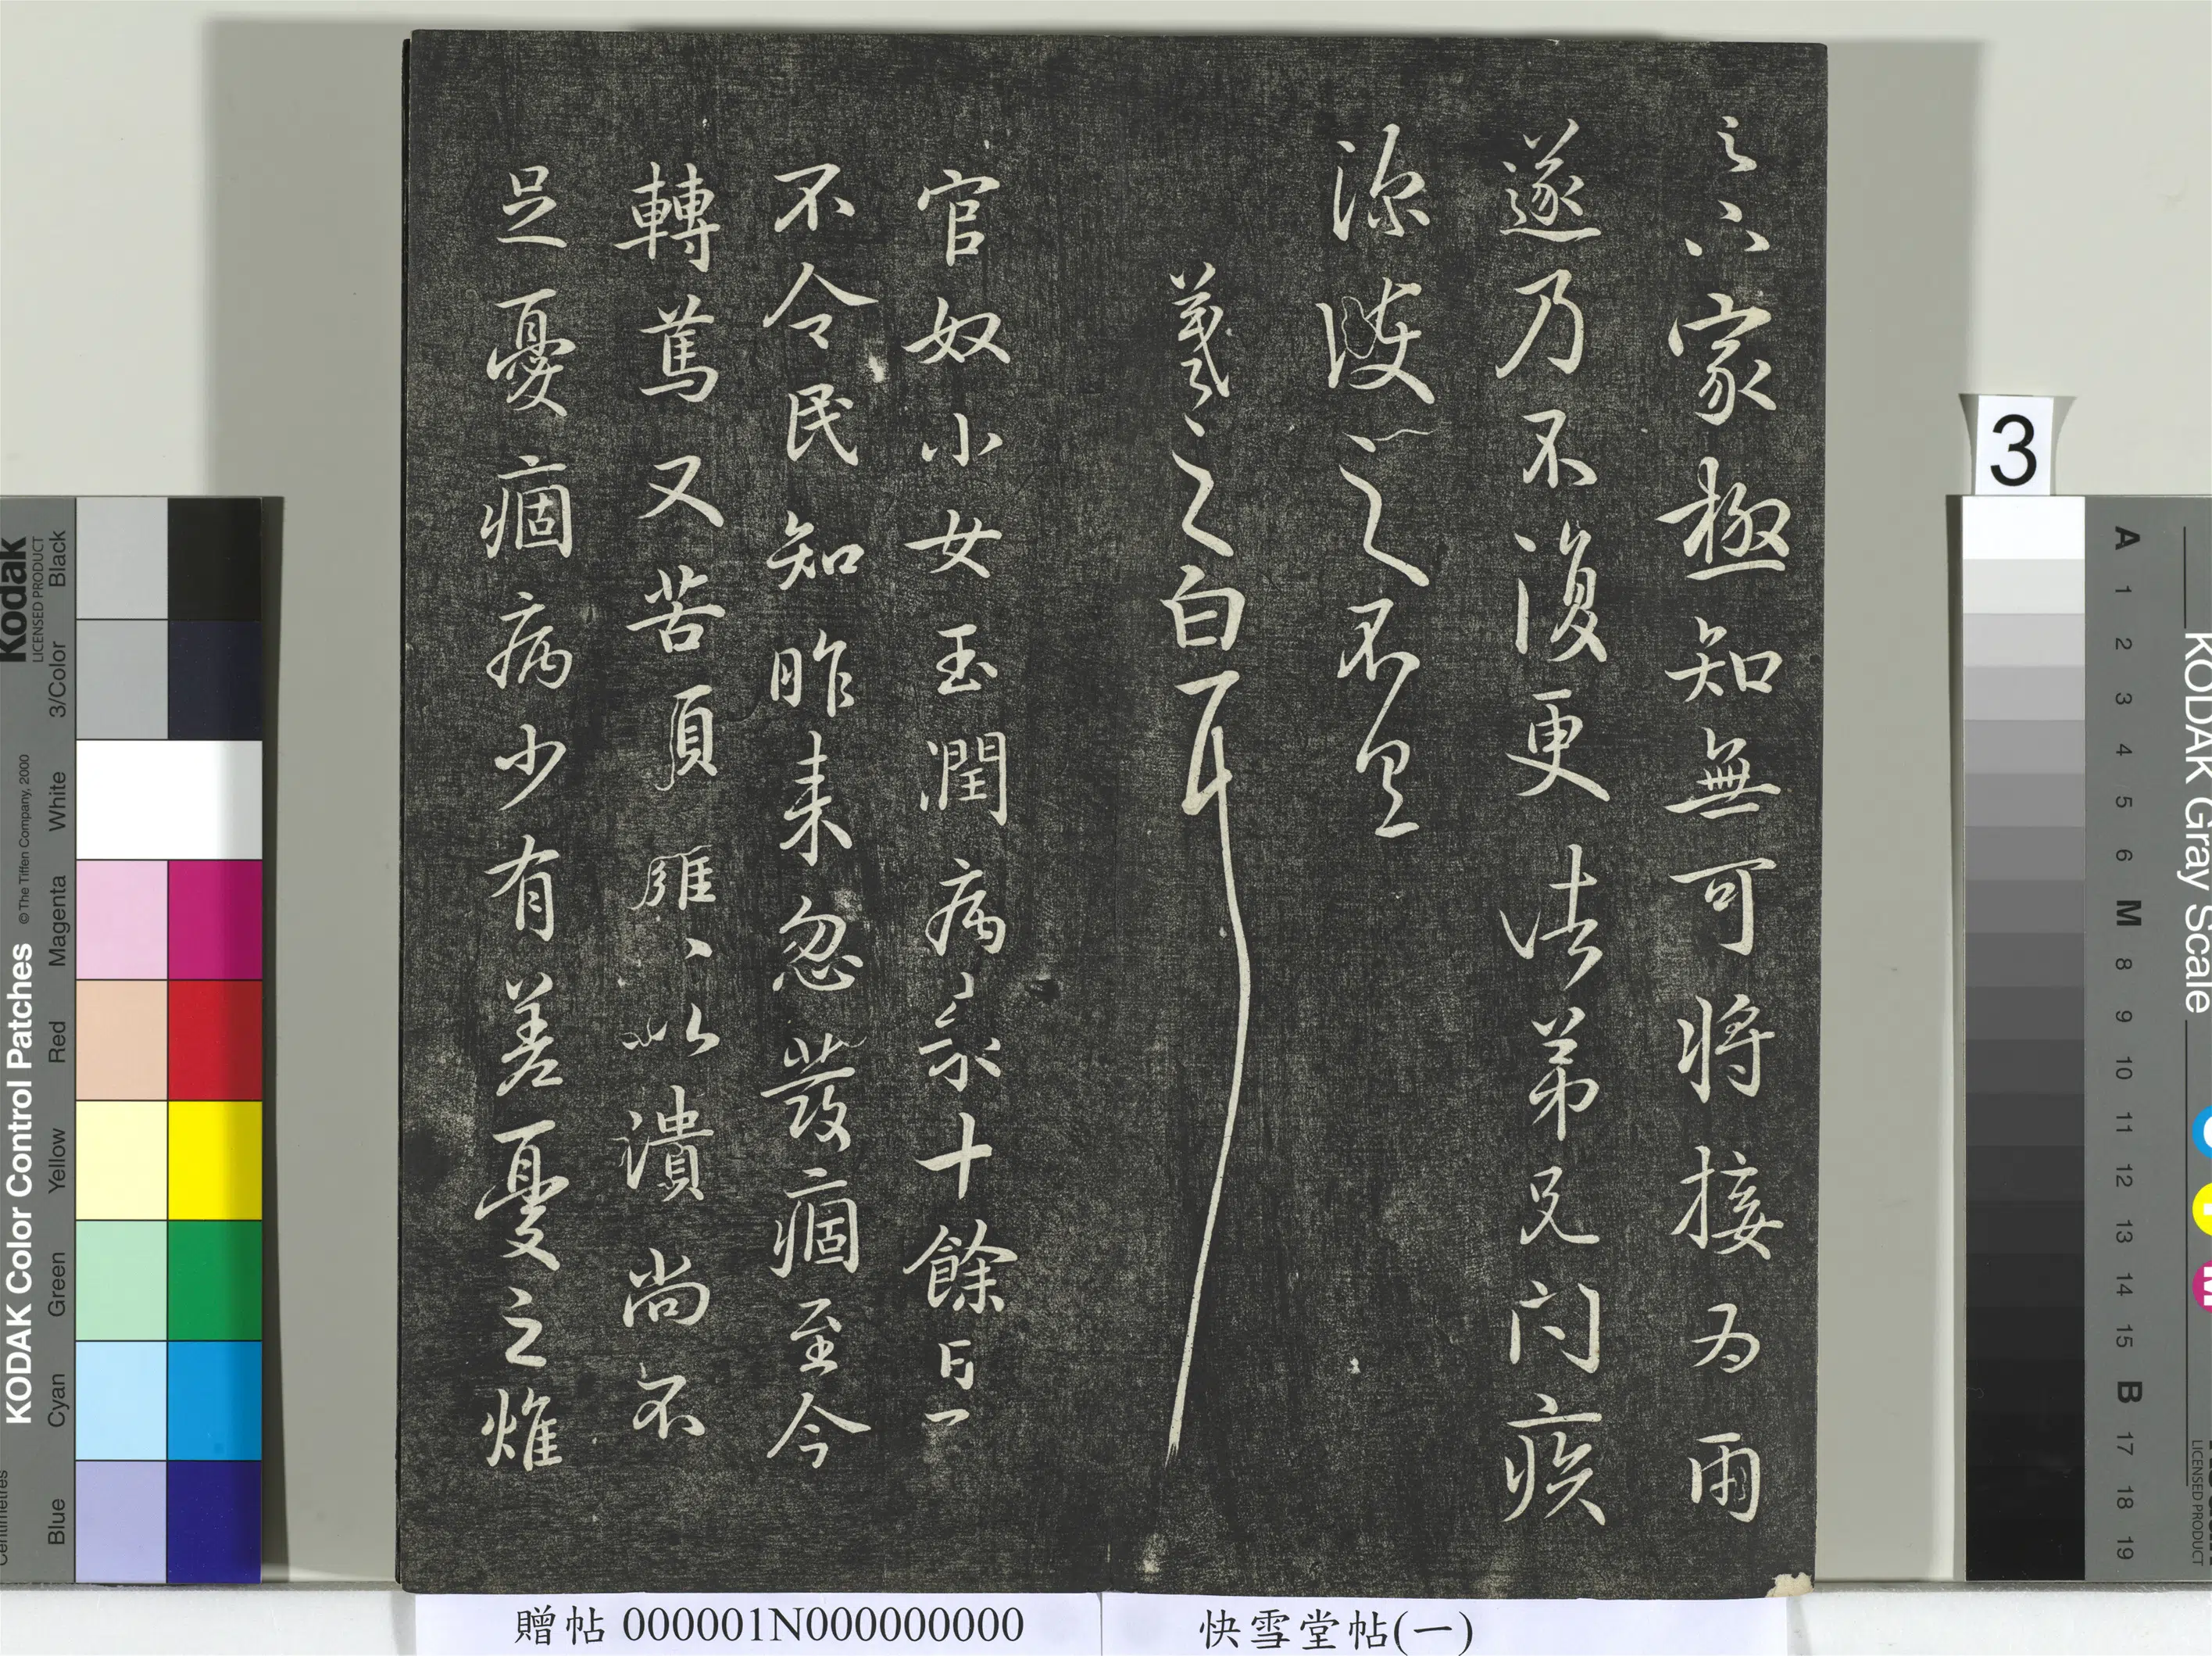 之六家極知無可將接為雨
遂乃不復更諸弟兄問疾
深護之不具
羲之白耳
官奴小女玉潤病來十餘日了
不令民知昨來忽發痼至今
轉篤又苦頭癰頭癰以潰尚不
足憂痼病少有差憂之燋
贈帖 000001N000000000
快雪堂帖(一)
3
Kodak
LICENSED PRODUCT
KODAK Color Control Patches
© The Tiffen Company, 2000
Black
3/Color
White
Magenta
Red
Yellow
Green
Cyan
Blue
Centimetres
KODAK Gray Scale
LICENSED PRODUCT
A 1 2 3 4 5 6 M 8 9 10 11 12 13 14 15 B 17 18 19
C
Y
M